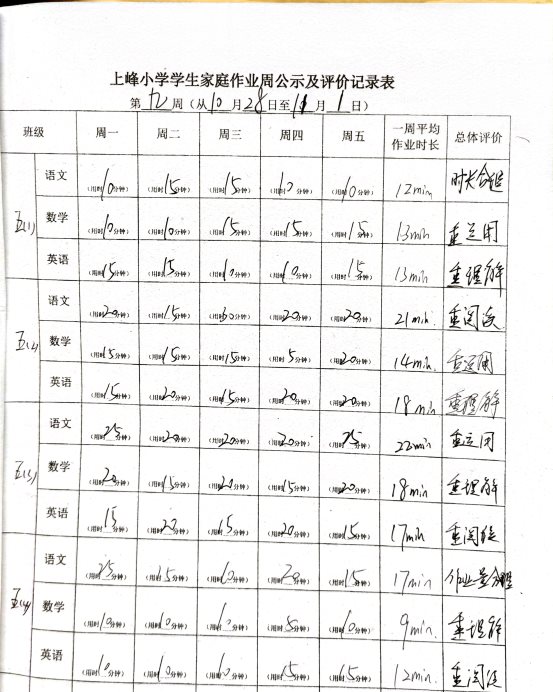 上峰小学学生家庭作业周公示及评价记录表
第 九 周（从 10 月 28 日至 11 月 1 日）
班级 周一 周二 周三 周四 周五 一周平均作业时长 总体评价
五(1) 语文 （用时10分钟） （用时15分钟） （用时15分钟） （用时10分钟） （用时10分钟） 12min 时长合理
数学 （用时10分钟） （用时10分钟） （用时15分钟） （用时15分钟） （用时15分钟） 13min 重运用
英语 （用时15分钟） （用时15分钟） （用时10分钟） （用时10分钟） （用时15分钟） 13min 重理解
五(2) 语文 （用时20分钟） （用时15分钟） （用时30分钟） （用时20分钟） （用时20分钟） 21min. 重阅读
数学 （用时15分钟） （用时15分钟） （用时15分钟） （用时5分钟） （用时20分钟） 14min. 重运用
英语 （用时15分钟） （用时20分钟） （用时15分钟） （用时20分钟） （用时20分钟） 18min 重理解
五(3) 语文 （用时25分钟） （用时20分钟） （用时20分钟） （用时20分钟） （用时25分钟） 22min 重运用
数学 （用时20分钟） （用时15分钟） （用时20分钟） （用时15分钟） （用时20分钟） 18min 重理解
英语 （用时15分钟） （用时20分钟） （用时15分钟） （用时20分钟） （用时15分钟） 17min 重阅读
五(4) 语文 （用时25分钟） （用时15分钟） （用时10分钟） （用时20分钟） （用时15分钟） 17min 作业量合理
数学 （用时10分钟） （用时10分钟） （用时10分钟） （用时8分钟） （用时10分钟） 9min. 重理解
英语 （用时10分钟） （用时10分钟） （用时10分钟） （用时15分钟） （用时15分钟） 12min 重阅读